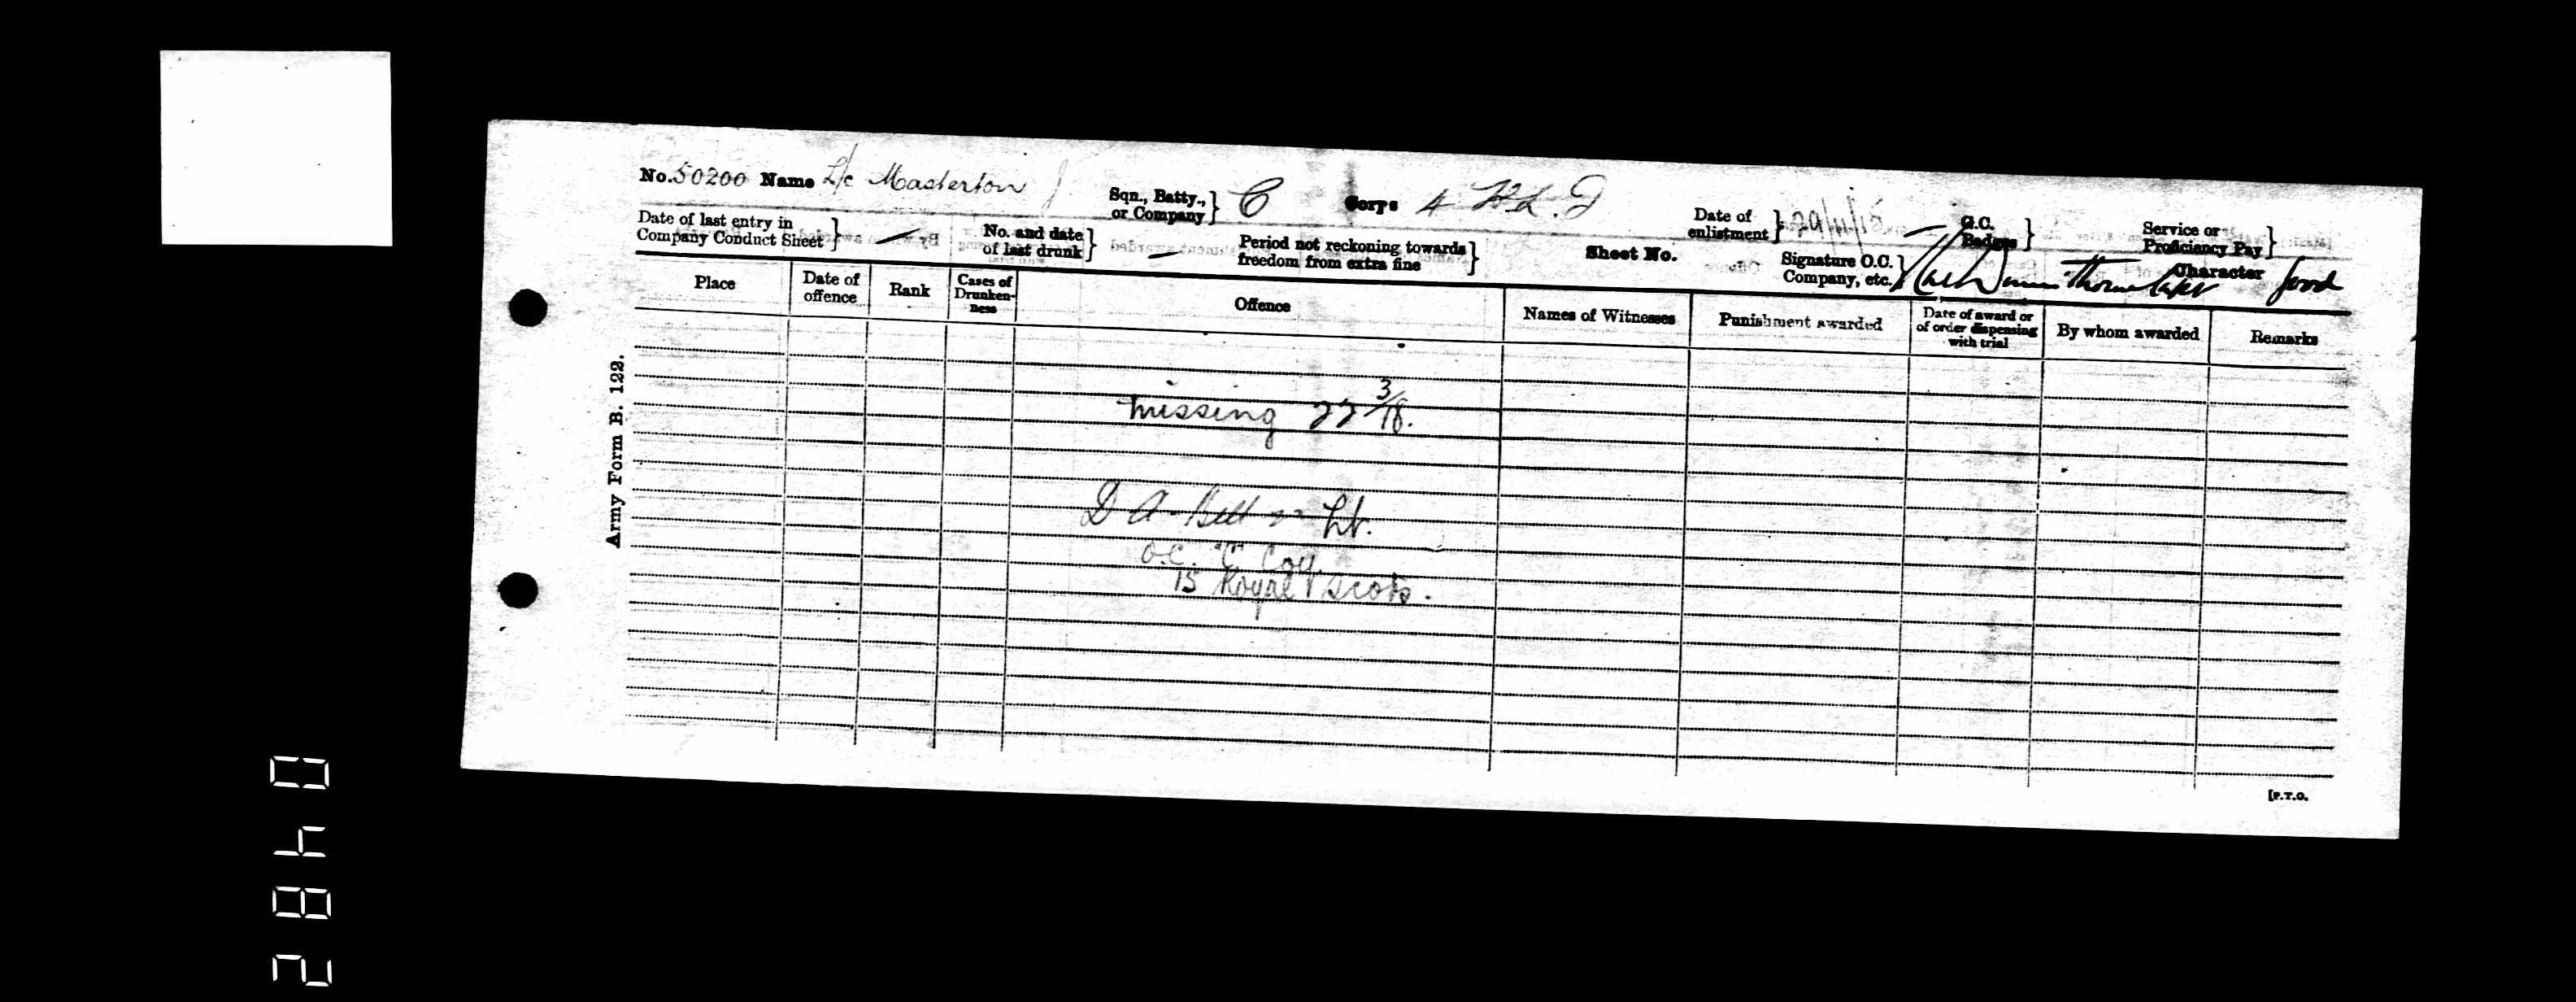 No. 50200 Name L/c Masterton J
Sqn., Batty., or Company } C
Corps 4 H.L.I
Date of enlistment } 29/11/15
G.C. Badges }
Service or Proficiency Pay }
Date of last entry in Company Conduct Sheet } —
No. and date of last drunk } —
Period not reckoning towards freedom from extra fine }
Sheet No.
Signature O.C. Company, etc. }
Character Good
Place
Date of offence
Rank
Cases of Drunken-ness
Offence
Names of Witnesses
Punishment awarded
Date of award or of order dispensing with trial
By whom awarded
Remarks
Army Form B. 122.
missing 22 3/18.
D A Bell Lt.
O.C. "C" Coy.
15 Royal Scots.
[P.T.O.
2840